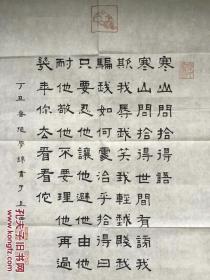 寒山問拾得語
寒山問拾得世間有謗我
欺我辱我笑我輕我賤我
騙我如何處治乎拾得曰
只要忍他讓他避他由他
耐他敬他不要理他再過
幾年你去看看佗
丁丑春 書于上